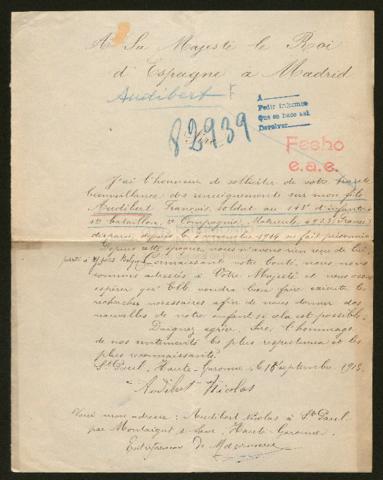 A Sa Majesté le Roi
d'Espagne à Madrid
Audibert F
A
Pedir informes
Que se hace así
Devolver
82939
Sire
Fecho
e.a.e.
J'ai l'honneur de solliciter de votre haute
bienveillance des renseignements sur mon fils
Audibert François, soldat au 143e d'infanterie
Bataillon, Compagnie, Matricule
disparu depuis le novembre 1914 ou fait prisonnier
Depuis cette époque, nous n'avons rien reçu de lui
Connaissant votre bonté, nous nous
sommes adressés à Votre Majesté et nous osons
espérer qu'Elle voudra bien faire exécuter les
recherches nécessaires afin de nous donner des
nouvelles de notre enfant si cela est possible.
Daignez agréer, Sire, l'hommage
de nos sentiments les plus respectueux et les
plus reconnaissants.
St Paul, Haute-Garonne, le 18 septembre 1915.
Audibert Nicolas
Voici mon adresse : Audibert Nicolas à St Paul
par Montaigut s/ Save, Haute-Garonne.
Entrepreneur de Maçonnerie